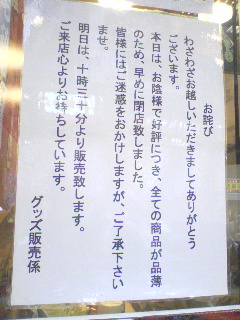 お詫び
わざわざお越しいただきましてありがとう
ございます。
本日は、お陰様で好評につき、全ての商品が品薄
のため、早めに閉店致しました。
皆様にはご迷惑をおかけしますが、ご了承下さい
ませ。
明日は、十時三十分より販売致します。
ご来店心よりお待ちしています。
グッズ販売係